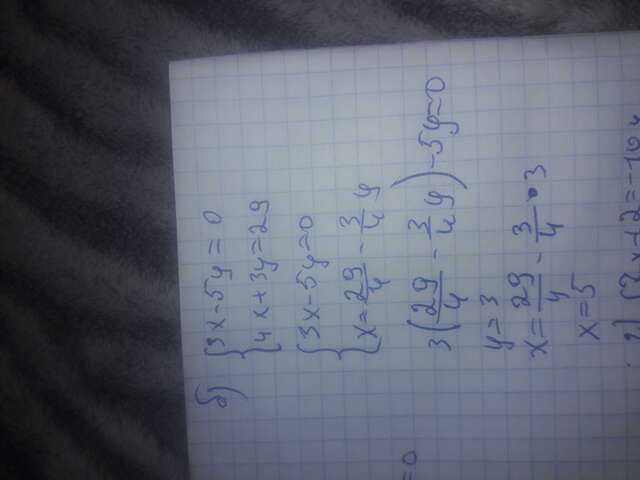 б) {3x-5y=0
{4x+3y=29
{3x-5y=0
{x=29/4-3/4y
3(29/4-3/4y)-5y=0
y=3
x=29/4-3/4•3
x=5
=0